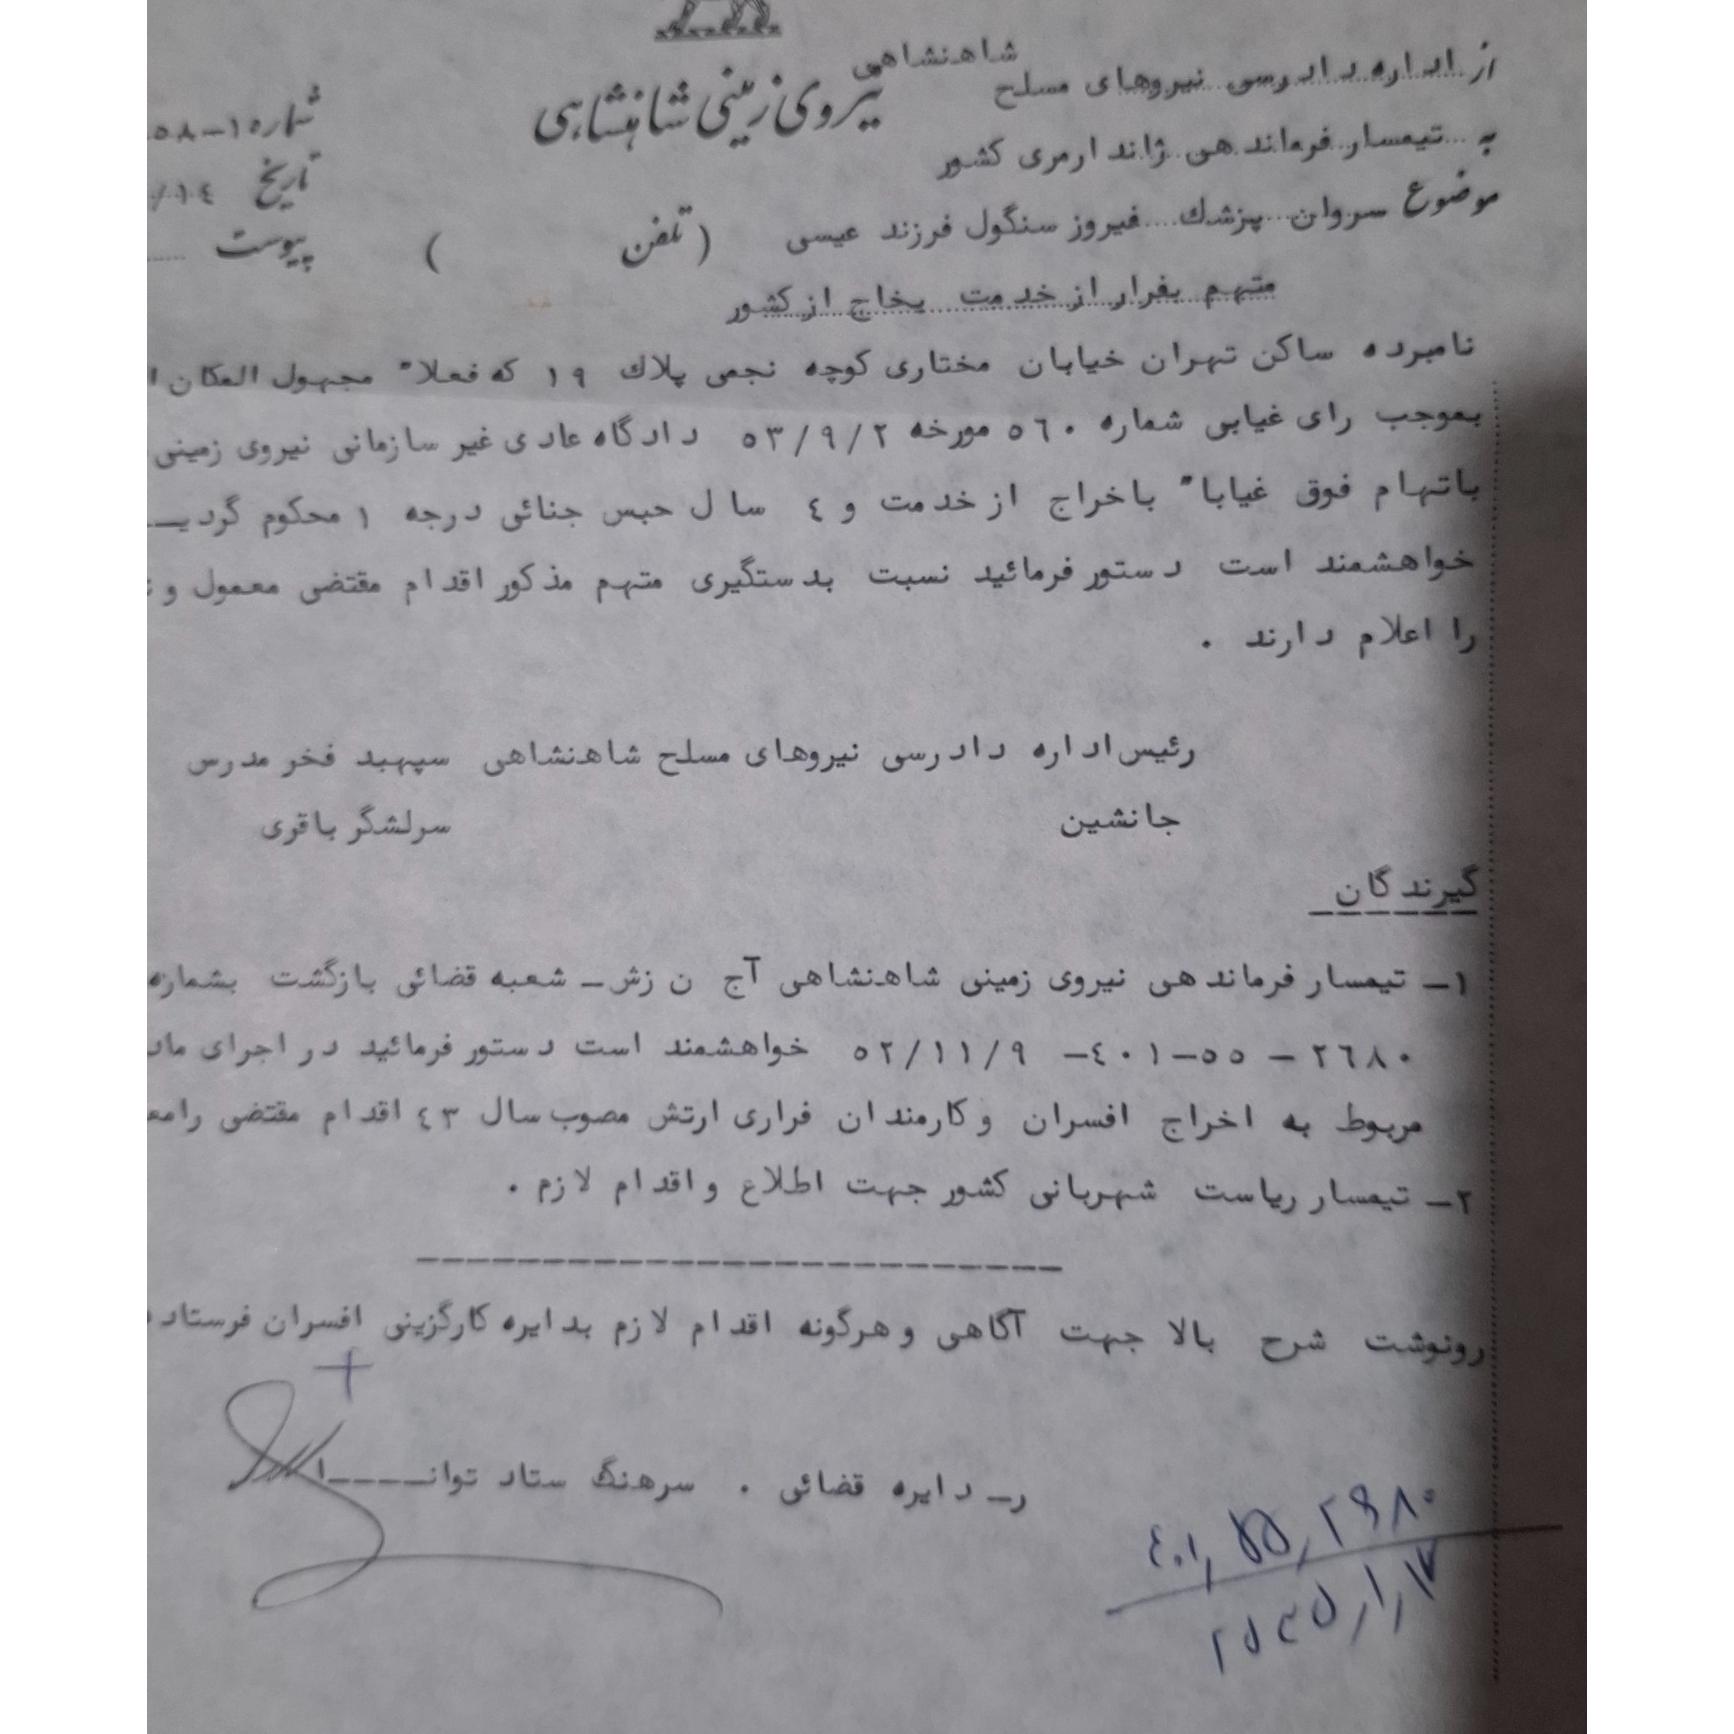 شاهنشاهی
از اداره دادرسی نیروهای مسلح
نیروی زمینی شاهنشاهی
شماره ۱-۵۸
به تیمسار فرماندهی ژاندارمری کشور
تاریخ ۱۴/
موضوع سروان پزشک فیروز سنگول فرزند عیسی (تلفن )
پیوست
متهم بفرار از خدمت بخاج از کشور
نامبرده ساکن تهران خیابان مختاری کوچه نجمی پلاک ۱۹ که فعلا" مجهول المکان
بموجب رای غیابی شماره ۵۶۰ مورخه ۵۳/۹/۲ دادگاه عادی غیر سازمانی نیروی زمینی
باتهام فوق غیابا" باخراج از خدمت و ۴ سال حبس جنائی درجه ۱ محکوم گردیـــ
خواهشمند است دستور فرمائید نسبت بدستگیری متهم مذکور اقدام مقتضی معمول و
را اعلام دارند .
رئیس اداره دادرسی نیروهای مسلح شاهنشاهی سپهبد فخر مدرس
جانشین سرلشگر باقری
گیرندگان
۱- تیمسار فرماندهی نیروی زمینی شاهنشاهی آج ن زش- شعبه قضائی بازگشت بشماره
۲۶۸۰ - ۵۵-۴۰۱- ۵۲/۱۱/۹ خواهشمند است دستور فرمائید در اجرای ماد
مربوط به اخراج افسران و کارمندان فراری ارتش مصوب سال ۴۳ اقدام مقتضی رامعـ
۲- تیمسار ریاست شهربانی کشور جهت اطلاع و اقدام لازم .
رونوشت شرح بالا جهت آگاهی و هرگونه اقدام لازم بدایره کارگزینی افسران فرستاد
ر- دایره قضائی . سرهنگ ستاد توانــــا